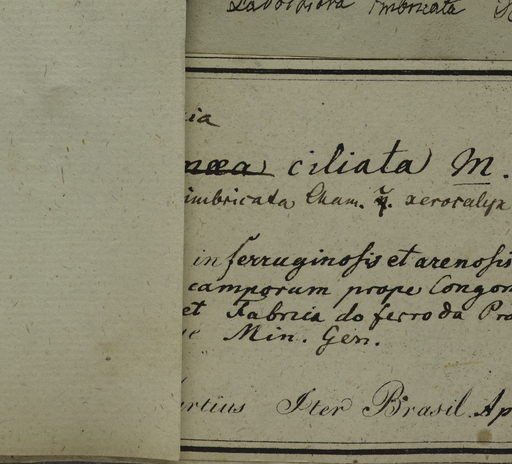 Lavoisiera imbricata
ia
naea ciliata M.
imbricata Cham. γ. xerocalyx
in ferruginosis et arenosis
camporum prope Congon
et Fabrica do ferro da Pro
Min. Gen.
rtius Iter Brasil. Ap